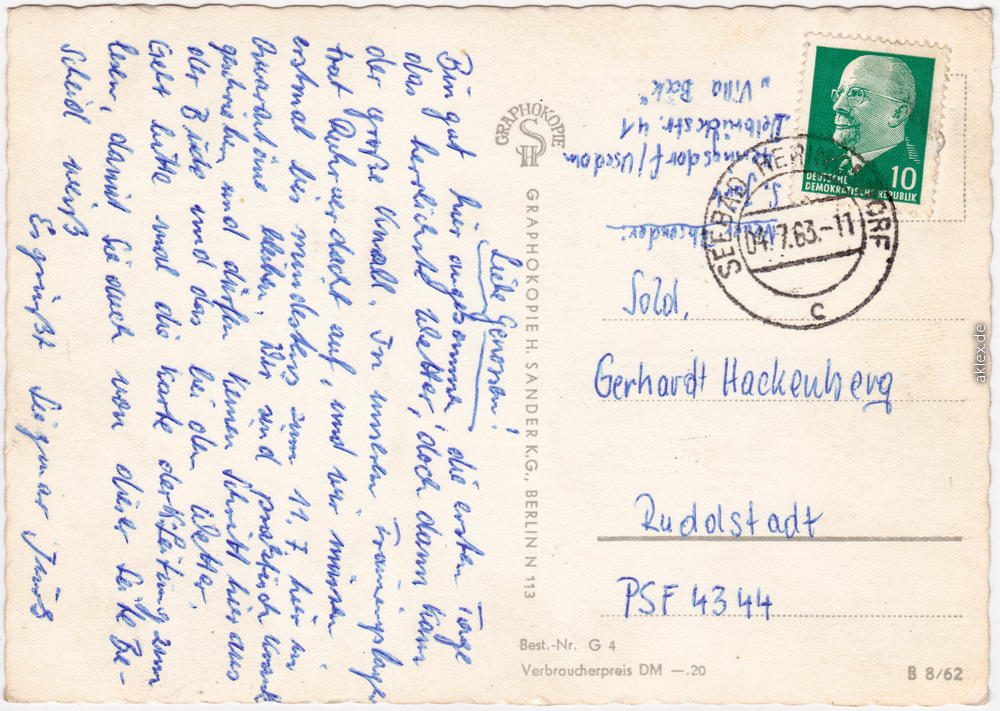 Liebe Genossen!
Bin gut hier angekommen, die ersten Tage
das herrlichste Wetter, doch dann kam
der große Knall. In unserem Trainingslager
trat Ruhrverdacht auf, und wir müssen
erstmal bis mindestens zum 11.7. hier in
Quarantäne bleiben. Wir sind praktisch
geschrieben und dürfen keinen Schritt hier aus
der Bude und das bei dem Wetter.
Gebt bitte mal die Karte der Leitung zum
lesen, damit sie auch von dieser Seite Be-
scheid weiß
Es grüßt Sigmar
GRAPHOKOPIE
SH
GRAPHOKOPIE H. SANDER K.G., BERLIN N 113
Absender:
Heringsdorf/Usedom
Delbrückstr. 41
"Villa Bock"
DEUTSCHE
DEMOKRATISCHE REPUBLIK
10
SEEBAD HERINGSDORF
04.7.63.-11
c
Sold.
Gerhardt Hackenberg
Rudolstadt
PSF 4344
Best.-Nr. G 4
Verbraucherpreis DM —.20
B 8/62
aklex.de